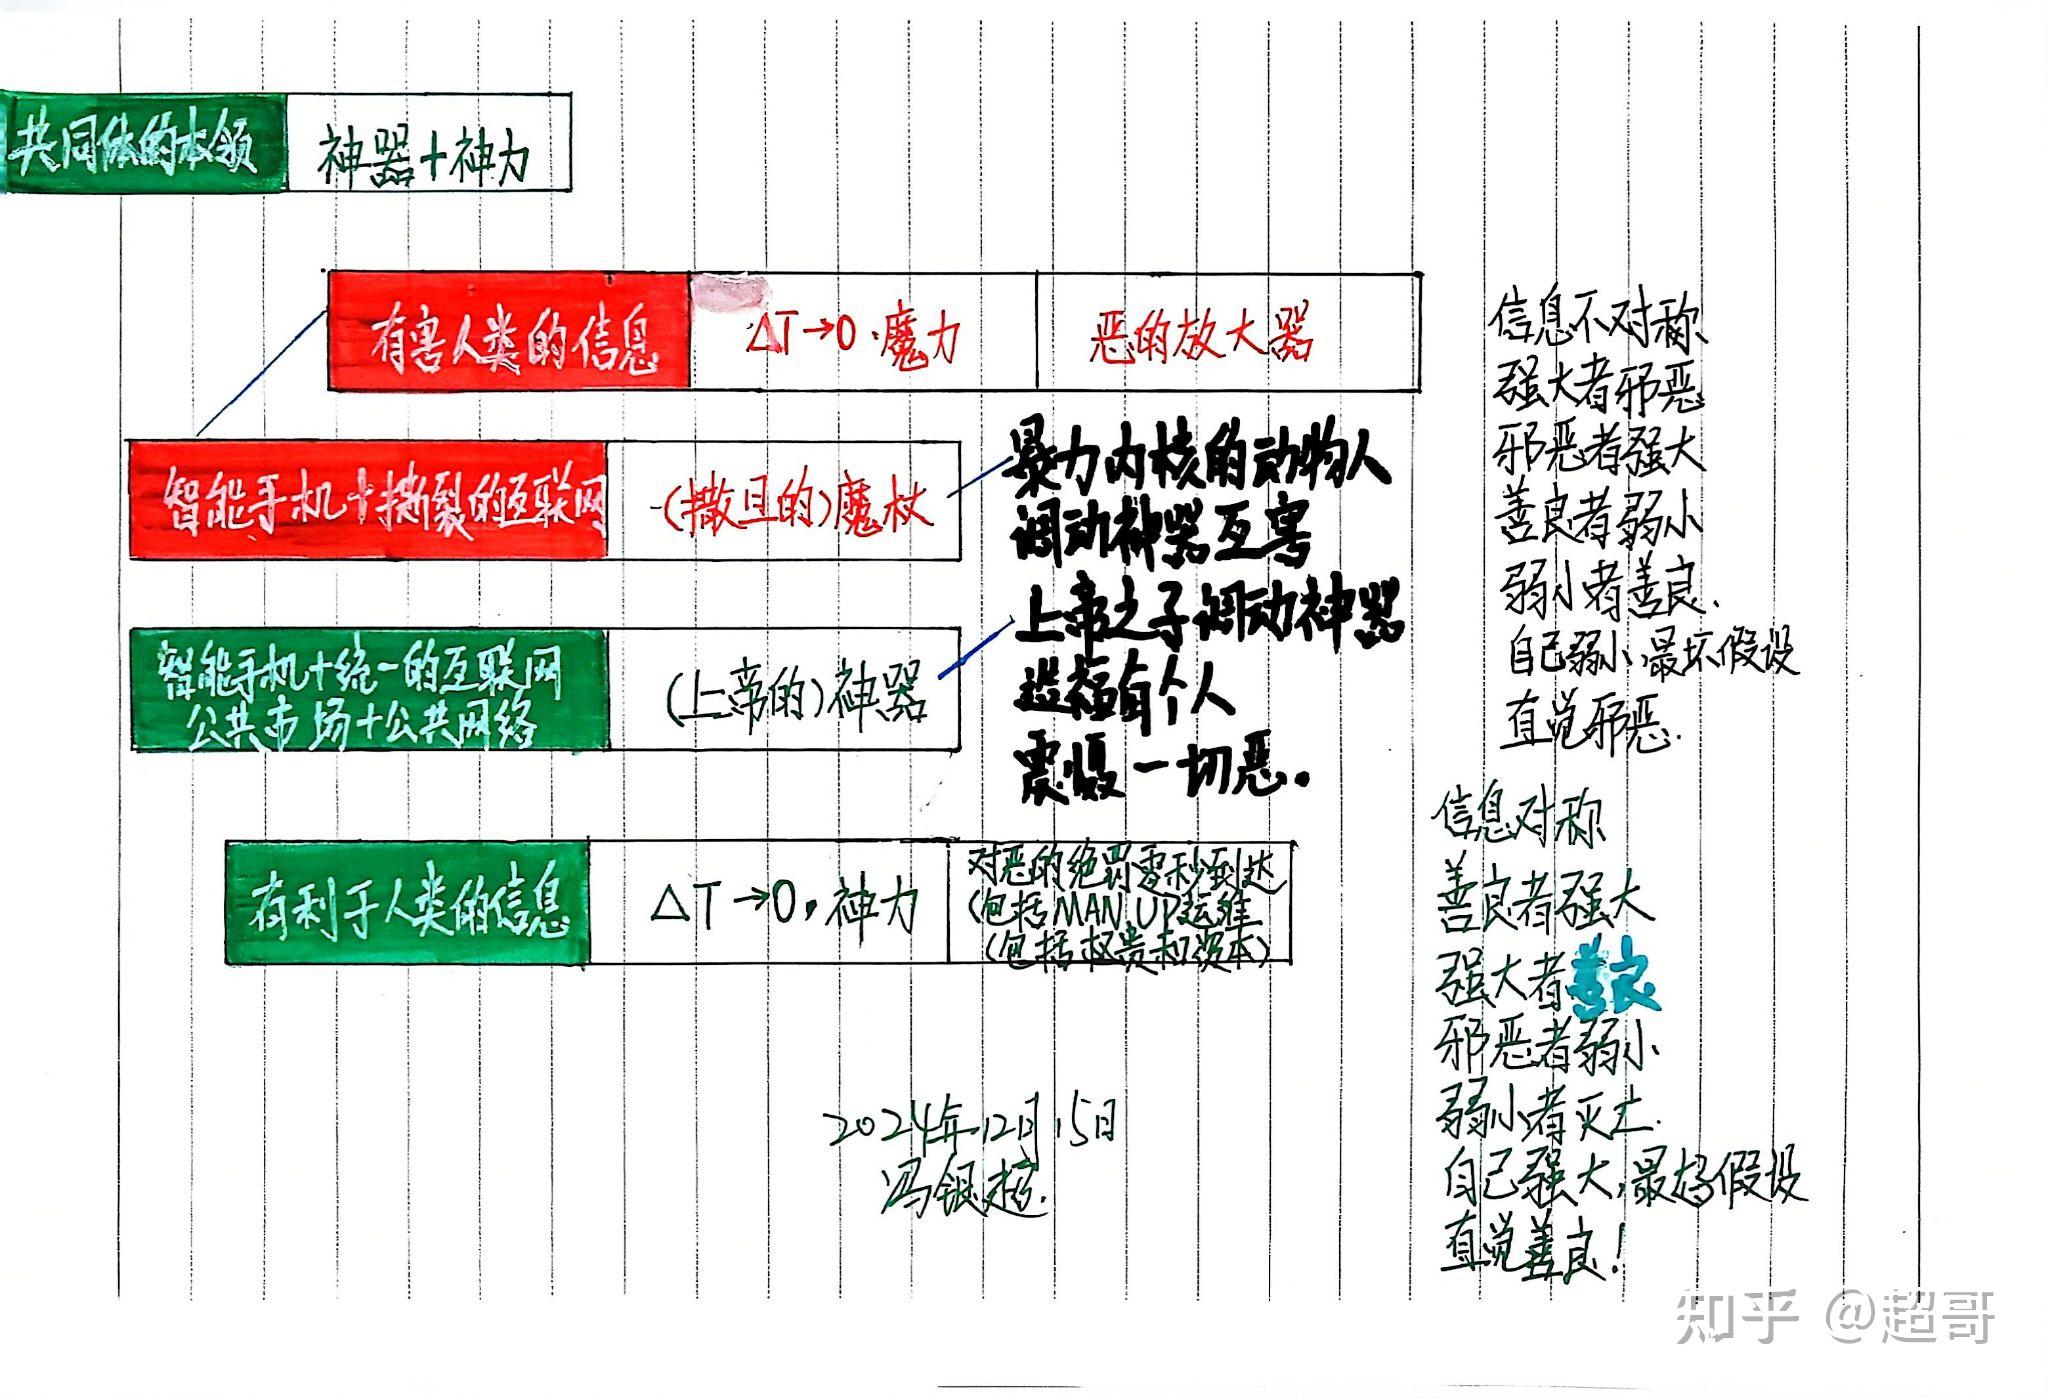 共同体的本领
神器+神力
有害人类的信息
ΔT→0·魔力
恶的放大器
智能手机+撕裂的互联网
(撒旦的)魔杖
暴力内核的动物人
调动神器互害
上帝之子调动神器
造福每个人
震慑一切恶.
智能手机+统一的互联网
公共市场+公共网络
(上帝的)神器
有利于人类的信息
ΔT→0,神力
对恶的绝罚零秒到达
(包括MAN UP运维
(包括权贵和资本)
2024年12月15日
冯银超.
信息不对称
强大者邪恶
邪恶者强大
善良者弱小
弱小者善良.
自己弱小,最坏假设
直觉邪恶.
信息对称
善良者强大
强大者善良
邪恶者弱小
弱小者灭亡.
自己强大,最好假设
直觉善良!
知乎 @超哥